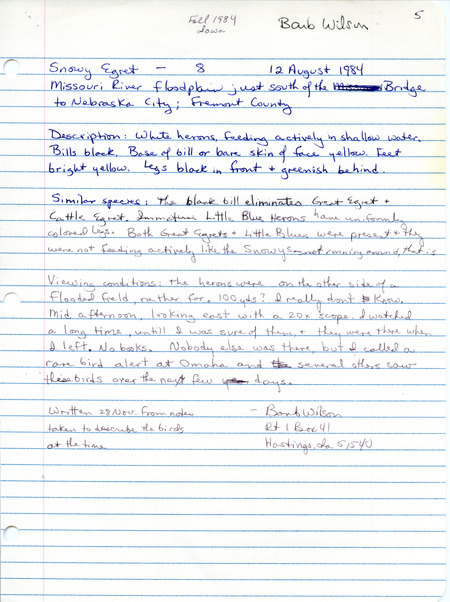 Fall 1984
Iowa
Barb Wilson
5
Snowy Egret - 8 12 August 1984
Missouri River floodplain just south of the Bridge
to Nebraska City; Fremont County
Description: White herons, feeding actively in shallow water.
Bills black. Base of bill or bare skin of face yellow. Feet
bright yellow. Legs black in front + greenish behind.
Similar species: The black bill eliminates Great Egret +
Cattle Egret. Immature Little Blue Herons have uniformly
colored legs. Both Great Egrets + Little Blues were present + they
were not feeding actively like the Snowys - not running around, that is
Viewing conditions: The herons were on the other side of a
flooded field, rather far. 100 yds? I really don't know.
Mid afternoon, looking east with a 20x scope. I watched
a long time, untill I was sure of them, + they were there when
I left. No books. Nobody else was there but I called a
rare bird alert at Omaha and several others saw
these birds over the next few days.
Written 28 Nov. from notes - Barb Wilson
taken to describe the birds Rt 1 Box 41
at the time Hastings, Ia 51540